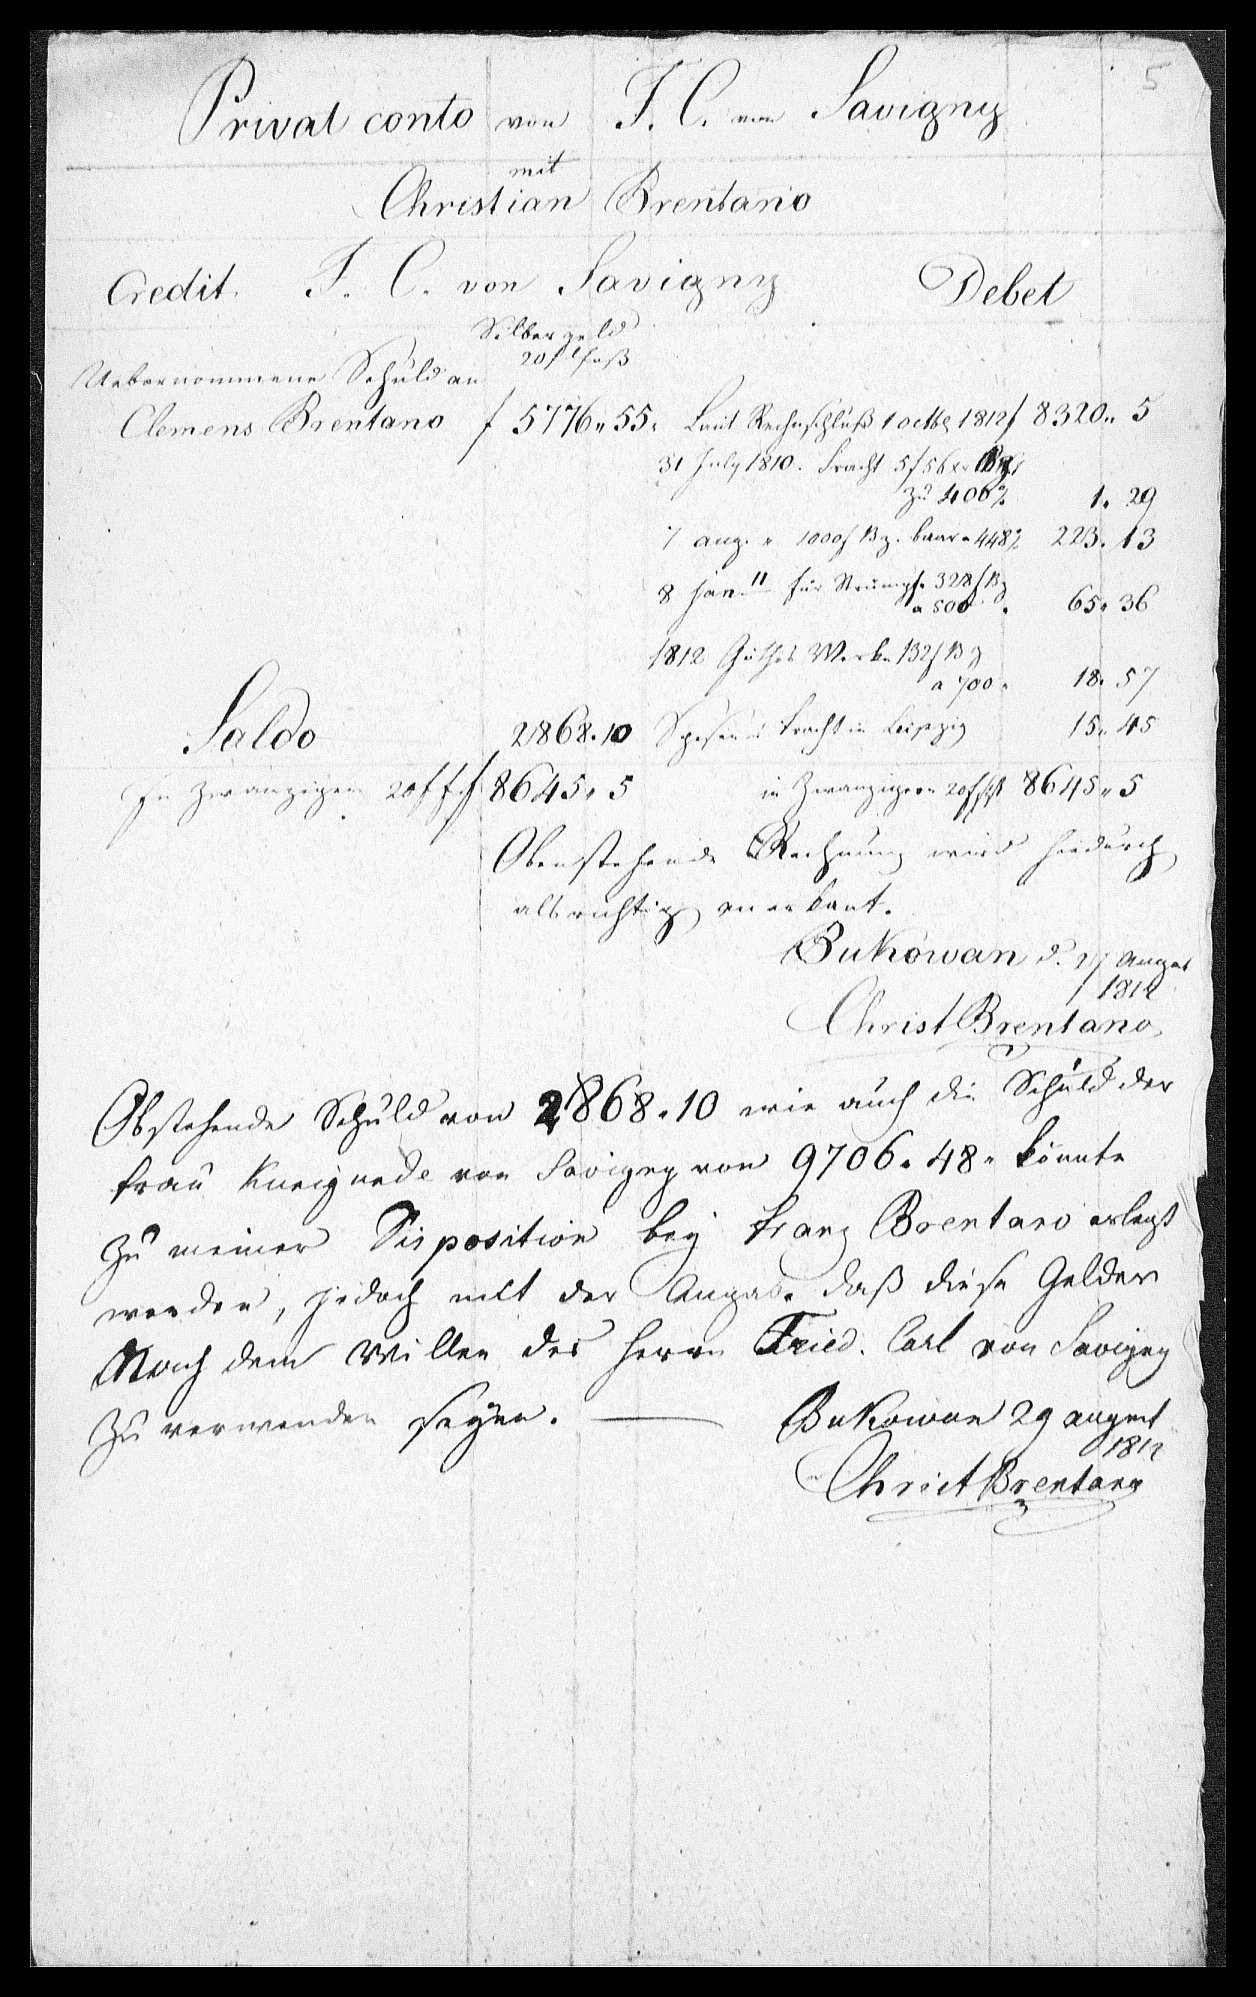 5
Privat conto von F. C. von Savigny
mit
Christian Brentano
Credit. F. C. von Savigny Debet
Silbergeld
20 f fuß
Uebernommene Schuld an
Clemens Brentano f 5776 " 55 " Laut Rechnschluß 1 octbr 1812 f 8320 " 5
31 July 1810. Fracht 5 f 56 xr Bz
zu 400 % 1 " 29
7 aug. " 1000 f Bz. baar a 448 % 223 " 13
8 jan. 11 für Strümpfe 328 f Bz
a 500 " 65 " 36
1812 Göthes Werke 132 f Bz
a 700 " 18 " 57
Saldo 2868 " 10 Spesen u Fracht in Leipzig 15 " 45
In Zwanzigern 20 f f f 8645 " 5 in Zwanzigern 20 f fß 8645 " 5
Obenstehende Rechnung wird hiedurch
als richtig anerkant.
Bukowan d. 27 August
1812
Christ Brentano
Obstehende Schuld von 2868 " 10 wie auch die Schuld der
Frau Kunigunde von Savigny von 9706 " 48 " könnte
zu meiner Disposition bey Franz Brentano erlegt
werden, jedoch mit der Angabe daß diese Gelder
Nach dem Willen des Herrn Fried. Carl von Savigny
zu verwenden seyen. —
Bukowan 29 august
1812
Christ Brentano